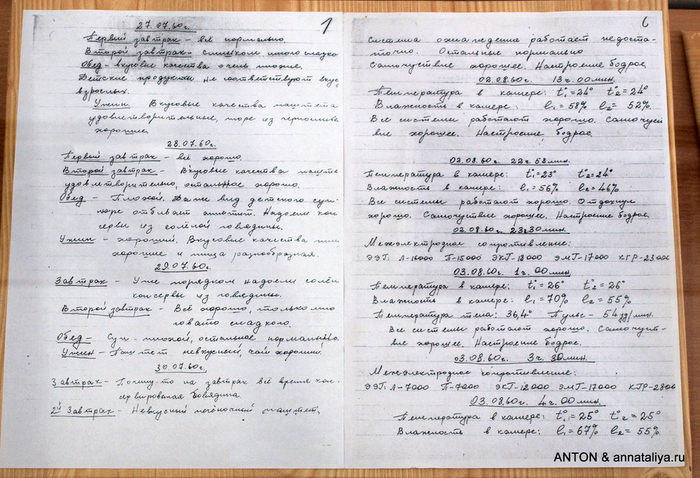 1
27.07.60г.
Первый завтрак - всё нормально
Второй завтрак - слишком много сладко
Обед - вкусовые качества очень плохие.
Детские продукты не соответствуют вкусу
взрослых.
Ужин. Вкусовые качества паштета
удовлетворительные, пюре из чернослива
хорошие.
28.07.60г.
Первый завтрак - всё хорошо.
Второй завтрак - Вкусовые качества паште
удовлетворительно, остальное хорошо.
Обед - Плохой. Даже вид детского суп-
пюре отбивает аппетит. Надоели кон
сервы из солёной говядины.
Ужин - хороший. Вкусовые качества
хорошие и пища разнообразная.
29.07.60г.
Завтрак - Уже порядком надоели солён
консервы из говядины.
Второй завтрак - Всё хорошо, только мно
говато сладкого.
Обед - Суп плохой, остальное нормально.
Ужин - Паштет невкусный, чай хороший.
30.07.60г.
Завтрак - Почему-то на завтрак всё время кон-
сервированая говядина.
2й завтрак - Невкусный печёночный паштет.
6
Система охлаждения работает недоста-
точно. Остальные нормально
Самочувствие хорошее. Настроение бодрое.
02.08.60г. 13ч.00мин.
Температура в камере: t°1=24° t°2=24°
Влажность в камере: l1=58% l2=52%
Все системы работают хорошо. Самочувст
вие хорошее. Настроение бодрое.
02.08.60г. 22ч 53мин.
Температура в камере: t°1=23° t°2=24°
Влажность в камере: l1=56% l2=46%
Все системы работают хорошо. Отдохнул
хорошо. Самочувствие хорошее. Настроение бодрое.
02.08.60г. 23ч30мин.
Межэлектродное сопротивление:
ЭЭГ Л-16000 П-15000 ЭКГ-18000 ЭМГ-17000 КГР-28000
03.08.60г. 1ч.00мин.
Температура в камере: t°1=26° t°2=26°
Влажность в камере: l1=70% l2=55%
Температура тела: 36,4° Пульс - 54 уд/мин.
Все системы работают хорошо. Самочувст-
вие хорошее. Настроение бодрое.
03.08.60г. 3ч.30мин.
Межэлектродное сопротивление:
ЭЭГ Л-7000 П-7000 ЭКГ-12000 ЭМГ-17000 КГР-2800
03.08.60г. 4ч.00мин.
Температура в камере: t°1=25° t°2=25°
Влажность в камере: l1=67% l2=55%
ANTON & annataliya.ru